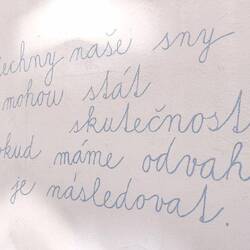 všechny naše sny
mohou stát
skutečnost
pokud máme odvah
je následovat.